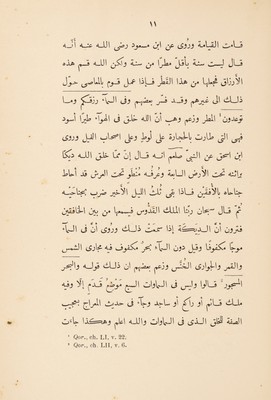 ١١
قامت القيامة وروى عن ابن مسعود رضى اللـه عنـه أنّـه
قال ليست سنة بأقلّ مطرًا من سنة ولكن اللـه قسم هذه
الأرزاق فجعلها من هذا القَطْر فإذا عمل قوم بالمعاصى حوّل
ذلـك الى غيرهم وقـد فسّر بعضهم وفى السمآء رزقكم ومـا
توعدون¹ المطر وزعم وهب أنّ اللـه خلق فى الهوآء طيرًا أسود
فهى التى طارت بالحجارة على لُوط وعلى اصحاب الفيل وروى
ابن اسحق عن النبىّ صلعم انـه قـال إنّ ممّا خلق اللـه ديكًا
براثنه تحت الأرض السابعة وعُرفُه منطوٍ تحت العرش قد أحاط
جناحاه بالأُفُقَيْن فـإذا بقى ثُلْث اللَيل الأخير ضرب بجناحَيْـه
ثمّ قال سبحان ربّنا الملك القدّوس فيسمعها من بين الخافقين
فترون أنّ الديكة إذا سمعَتْ ذلـك وروى أنّ فى السمآء
موجًا مكفوفًا وقيل دون السمآء بحرٌ مكفوف فيه مجارى الشمس
والقمر والجوارى الخُنّس وزعم بعضهم ان ذلك قولـه والبحر
المسجور² قـالوا وليس فى السماوات السبع موضع قدم إلّا وفيه
ملك قـائم أو راكع أو ساجد وجآء فى حديث المعراج بعجيب
الصفة للخلق الـذى فى السماوات واللـه اعلم وهكذا جاءت
¹ Qor., ch. LI, v. 22.
² Qor., ch. LII, v. 6.